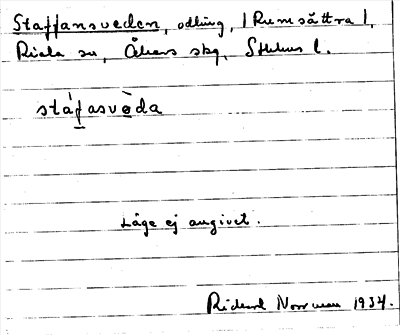 Staffansveden, odling, | Rumsättra |,
Riala sn, Åkers skg, Sthlms l.
stáfasvèda
Läge ej angivet.
Rickard Norrman 1934.